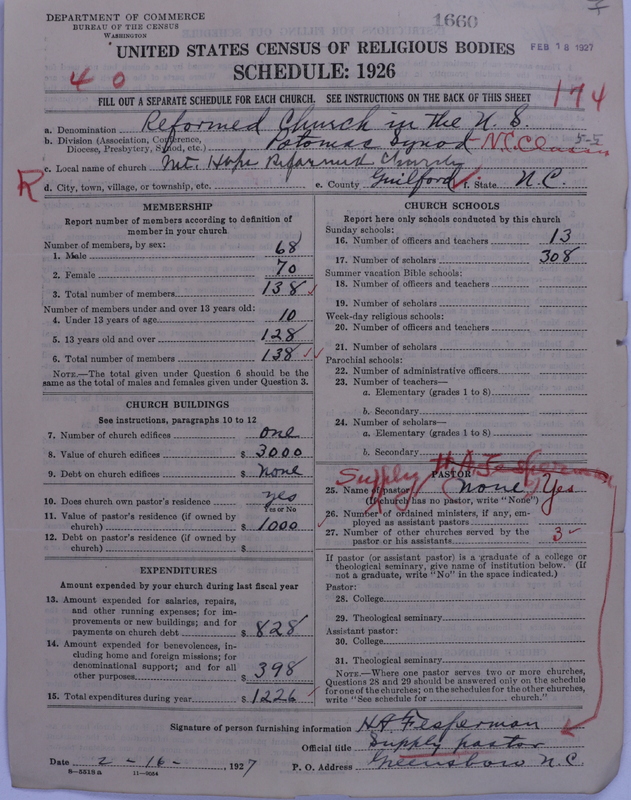 DEPARTMENT OF COMMERCE
BUREAU OF THE CENSUS
WASHINGTON
1660
UNITED STATES CENSUS OF RELIGIOUS BODIES
FEB 18 1927
SCHEDULE: 1926
4 0
174
FILL OUT A SEPARATE SCHEDULE FOR EACH CHURCH. SEE INSTRUCTIONS ON THE BACK OF THIS SHEET
a. Denomination Reformed Church in the U. S.
b. Division (Association, Conference, Diocese, Presbytery, Synod, etc.) Potomac Synod N.C. Classis 5-5
c. Local name of church Mt. Hope Reformed Church
R d. City, town, village, or township, etc. e. County Guilford f. State N.C.
MEMBERSHIP
Report number of members according to definition of
member in your church
Number of members, by sex:
1. Male 68
2. Female 70
3. Total number of members 138
Number of members under and over 13 years old:
4. Under 13 years of age 10
5. 13 years old and over 128
6. Total number of members 138
NOTE.—The total given under Question 6 should be the
same as the total of males and females given under Question 3.
CHURCH BUILDINGS
See instructions, paragraphs 10 to 12
7. Number of church edifices one
8. Value of church edifices $ 3000
9. Debt on church edifices $ None
10. Does church own pastor's residence yes
Yes or No
11. Value of pastor's residence (if owned by
church) $ 1000
12. Debt on pastor's residence (if owned by
church) $
EXPENDITURES
Amount expended by your church during last fiscal year
13. Amount expended for salaries, repairs,
and other running expenses; for im-
provements or new buildings; and for
payments on church debt $ 828
14. Amount expended for benevolences, in-
cluding home and foreign missions; for
denominational support; and for all
other purposes $ 398
15. Total expenditures during year $ 1226
CHURCH SCHOOLS
Report here only schools conducted by this church
Sunday schools:
16. Number of officers and teachers 13
17. Number of scholars 308
Summer vacation Bible schools:
18. Number of officers and teachers
19. Number of scholars
Week-day religious schools:
20. Number of officers and teachers
21. Number of scholars
Parochial schools:
22. Number of administrative officers
23. Number of teachers—
a. Elementary (grades 1 to 8)
b. Secondary
24. Number of scholars—
a. Elementary (grades 1 to 8)
b. Secondary
Supply H. A. Fesperman
PASTOR
25. Name of pastor (None) Yes
(If church has no pastor, write "None")
26. Number of ordained ministers, if any, em-
ployed as assistant pastors
27. Number of other churches served by the
pastor or his assistants 3
If pastor (or assistant pastor) is a graduate of a college or
theological seminary, give name of institution below. (If
not a graduate, write "No" in the space indicated.)
Pastor:
28. College
29. Theological seminary
Assistant pastor:
30. College
31. Theological seminary
NOTE.—Where one pastor serves two or more churches,
Questions 28 and 29 should be answered only on the schedule
for one of the churches; on the schedules for the other churches,
write "See schedule for church."
Signature of person furnishing information H.A. Fesperman
Official title Supply pastor
Date 2-16-, 1927 P. O. Address Greensboro N.C
8—5518a 11—9034